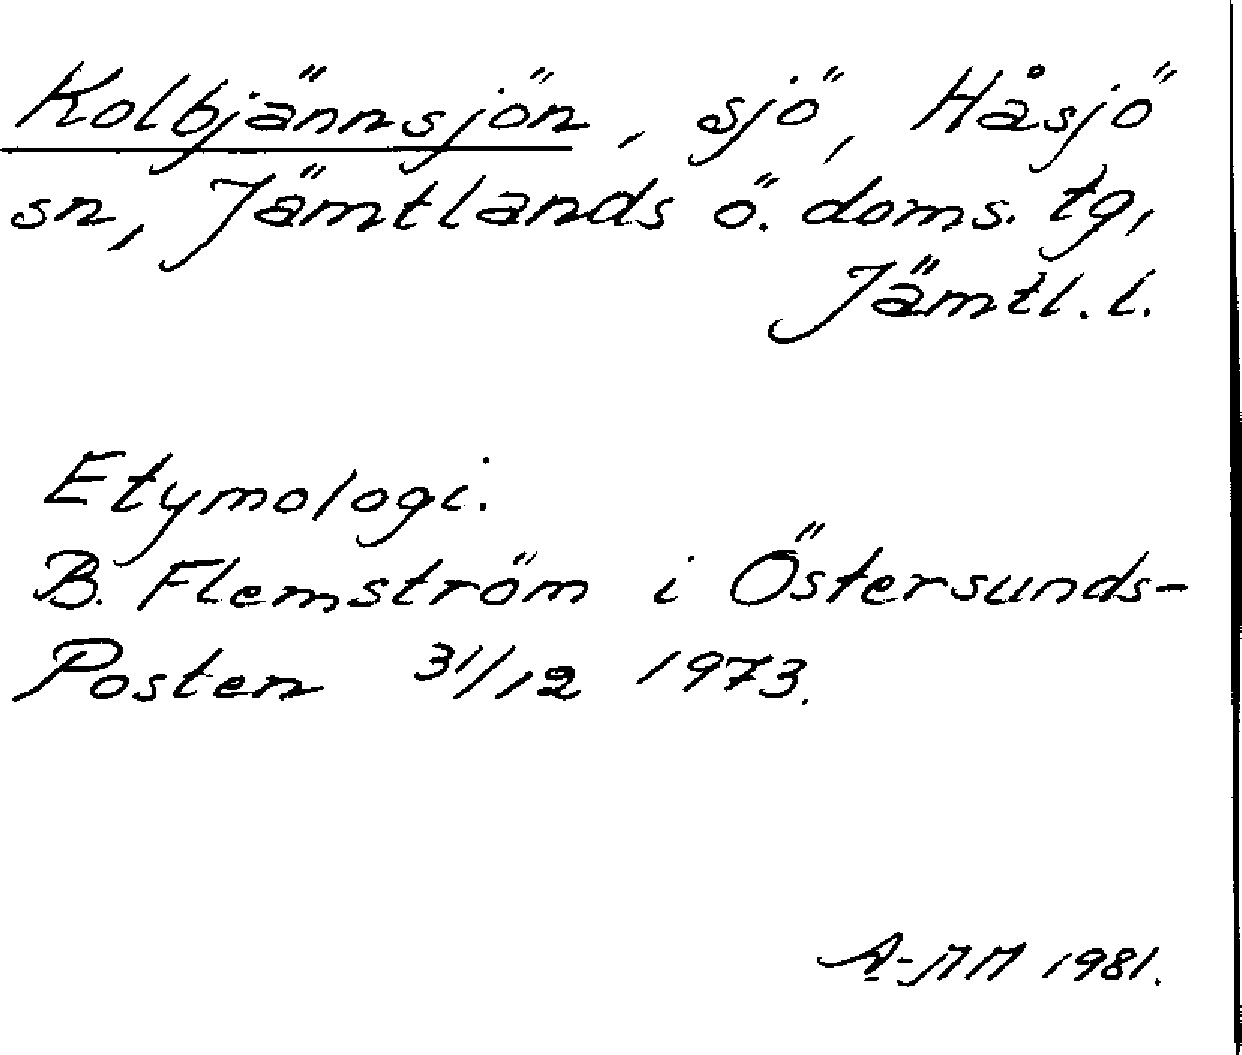 Kolbjännsjön, sjö, Håsjö
sn, Jämtlands ö. doms. tg,
Jämtl. l.
Etymologi.
B. Flemström i Östersunds-
Posten 31/12 1973.
A-MM 1981.